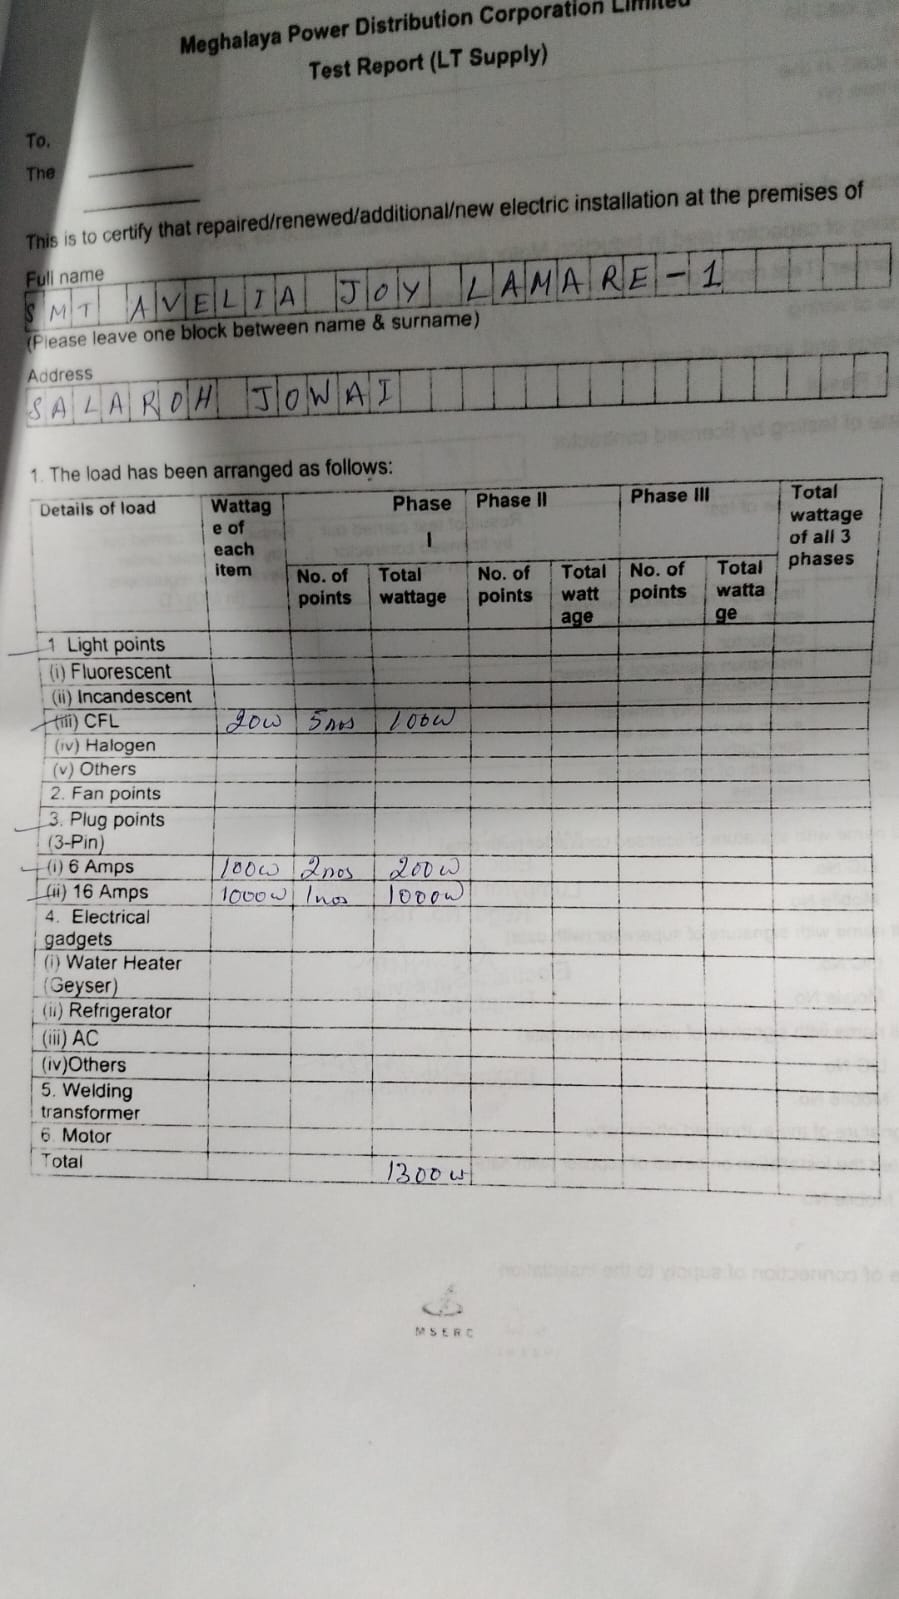 Meghalaya Power Distribution Corporation Limited
Test Report (LT Supply)
To,
The
This is to certify that repaired/renewed/additional/new electric installation at the premises of
Full name
SMT AVELIA JOY LAMARE-1
(Please leave one block between name & surname)
Address
SALAROH JOWAI
1. The load has been arranged as follows:
Details of load Wattag e of each item Phase I Phase II Phase III Total wattage of all 3 phases
No. of points Total wattage No. of points Total watt age No. of points Total watta ge
1 Light points
(i) Fluorescent
(ii) Incandescent
(iii) CFL 20W 5nos 100W
(iv) Halogen
(v) Others
2. Fan points
3. Plug points
(3-Pin)
(i) 6 Amps 100W 2nos 200W
(ii) 16 Amps 1000W 1nos 1000W
4. Electrical
gadgets
(i) Water Heater
(Geyser)
(ii) Refrigerator
(iii) AC
(iv)Others
5. Welding
transformer
6. Motor
Total 1300W
MSERC